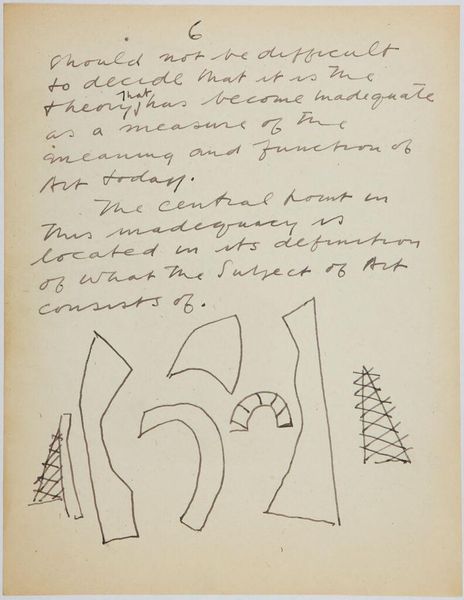 6
should not be difficult
to decide that it is the
theory that has become inadequate
as a measure of the
meaning and function of
Art today.
The central point in
this inadequacy is
located in its definition
of what the Subject of Art
consists of.